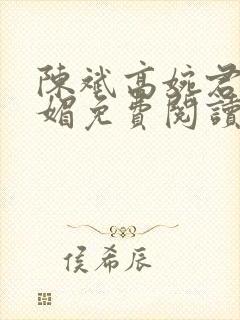 陳斌高婉君
媚免費閱讀
侯希辰